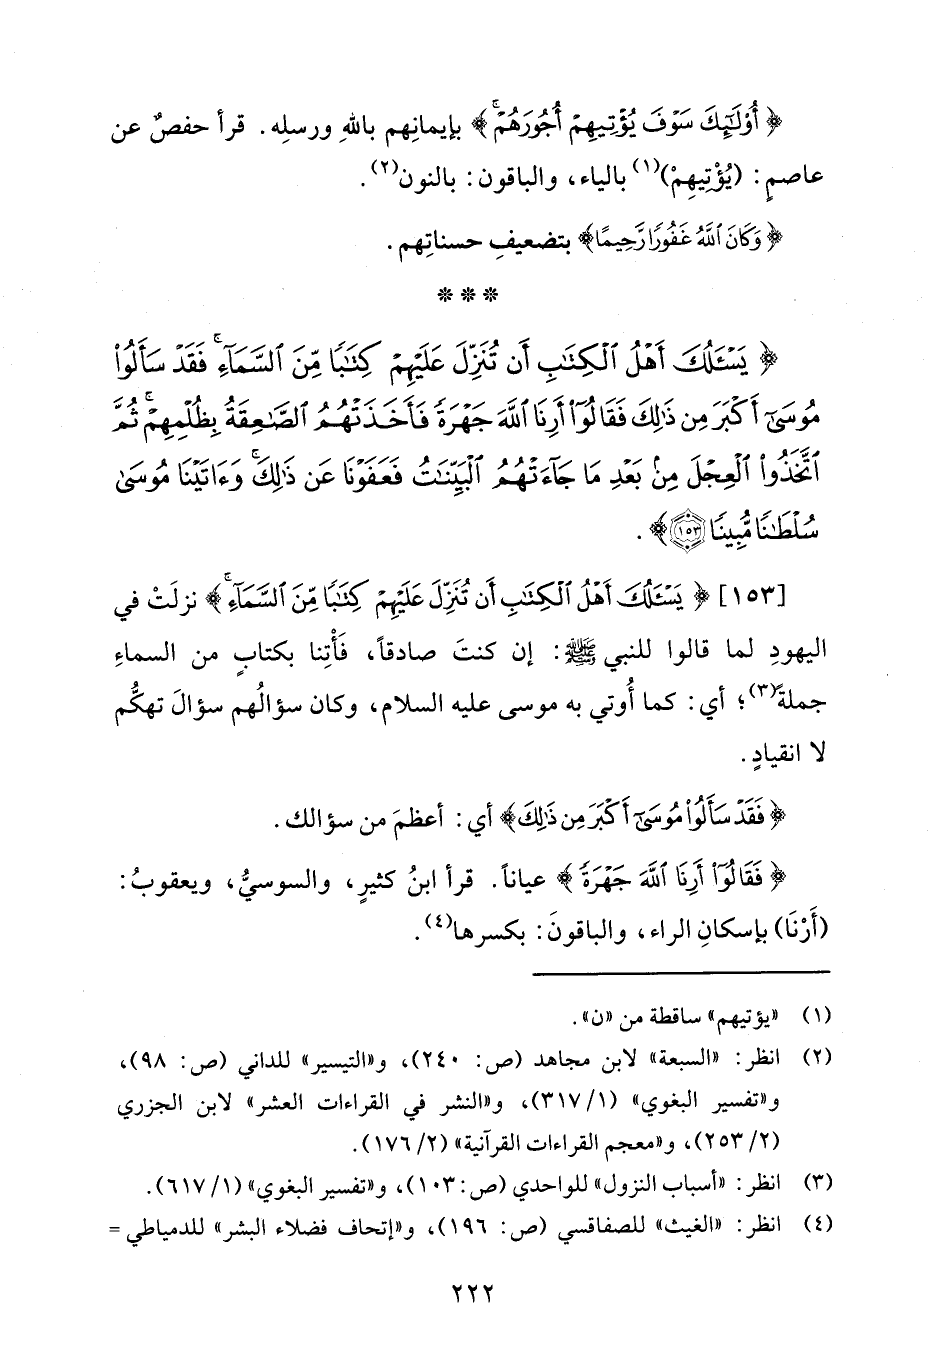 ﴿أُوْلَٰٓئِكَ سَوۡفَ يُؤۡتِيهِمۡ أُجُورَهُمۡۚ﴾ بإيمانِهم باللهِ ورسلِه. قرأ حفصٌ عن
عاصمٍ: (يُؤْتِيهِمْ)(١) بالياء، والباقون: بالنون(٢).
﴿وَكَانَ ٱللَّهُ غَفُورٗا رَّحِيمٗا﴾ بتضعيفِ حسناتِهم.
* * *
﴿يَسۡـَٔلُكَ أَهۡلُ ٱلۡكِتَٰبِ أَن تُنَزِّلَ عَلَيۡهِمۡ كِتَٰبٗا مِّنَ ٱلسَّمَآءِۚ فَقَدۡ سَأَلُواْ
مُوسَىٰٓ أَكۡبَرَ مِن ذَٰلِكَ فَقَالُوٓاْ أَرِنَا ٱللَّهَ جَهۡرَةٗ فَأَخَذَتۡهُمُ ٱلصَّٰعِقَةُ بِظُلۡمِهِمۡۚ ثُمَّ
ٱتَّخَذُواْ ٱلۡعِجۡلَ مِنۢ بَعۡدِ مَا جَآءَتۡهُمُ ٱلۡبَيِّنَٰتُ فَعَفَوۡنَا عَن ذَٰلِكَۚ وَءَاتَيۡنَا مُوسَىٰ
سُلۡطَٰنٗا مُّبِينٗا ١٥٣﴾.
[١٥٣] ﴿يَسۡـَٔلُكَ أَهۡلُ ٱلۡكِتَٰبِ أَن تُنَزِّلَ عَلَيۡهِمۡ كِتَٰبٗا مِّنَ ٱلسَّمَآءِۚ﴾ نزلَتْ في
اليهودِ لما قالوا للنبي ﷺ: إن كنتَ صادقاً، فَأْتِنا بكتابٍ من السماءِ
جملةً(٣)؛ أي: كما أُوتي به موسى عليه السلام، وكان سؤالُهم سؤالَ تهكُّم
لا انقيادٍ.
﴿فَقَدۡ سَأَلُواْ مُوسَىٰٓ أَكۡبَرَ مِن ذَٰلِكَ﴾ أي: أعظمَ من سؤالك.
﴿فَقَالُوٓاْ أَرِنَا ٱللَّهَ جَهۡرَةٗ﴾ عياناً. قرأ ابنُ كثيرٍ، والسوسيُّ، ويعقوبُ:
(أَرْنَا) بإسكانِ الراء، والباقونَ: بكسرها(٤).
(١) «يؤتيهم» ساقطة من «ن».
(٢) انظر: «السبعة» لابن مجاهد (ص: ٢٤٠)، و«التيسير» للداني (ص: ٩٨)،
و«تفسير البغوي» (١/ ٣١٧)، و«النشر في القراءات العشر» لابن الجزري
(٢/ ٢٥٣)، و«معجم القراءات القرآنية» (٢/ ١٧٦).
(٣) انظر: «أسباب النزول» للواحدي (ص: ١٠٣)، و«تفسير البغوي» (١/ ٦١٧).
(٤) انظر: «الغيث» للصفاقسي (ص: ١٩٦)، و«إتحاف فضلاء البشر» للدمياطي =
٢٢٢